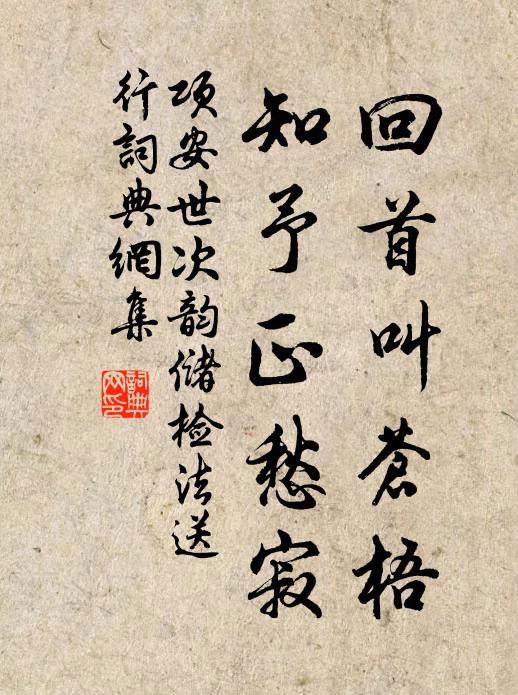 回首叫蒼梧
知予正愁寂
項安世次韵儲检法送
行詞典網集
詞典
网印